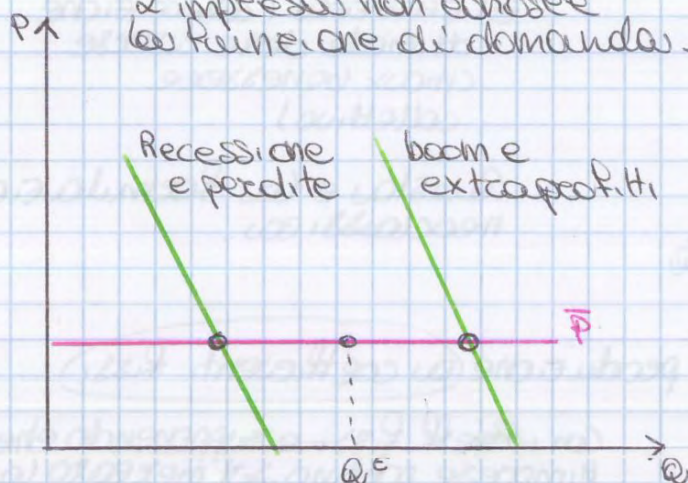 L'impresa non conosce
la funzione di domanda.
P
Recessione
e perdite
boom e
extraprofitti
P̅
Qᵉ
Q